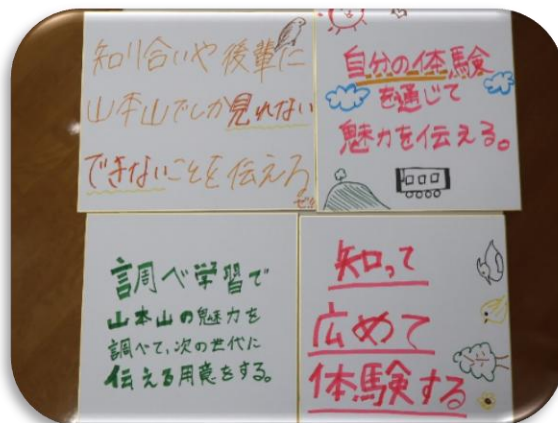 知り合いや後輩に
山本山でしか見れない
できないことを伝える
自分の体験
を通じて
魅力を伝える。
調べ学習で
山本山の魅力を
調べて、次の世代に
伝える用意をする。
知って
広めて
体験する